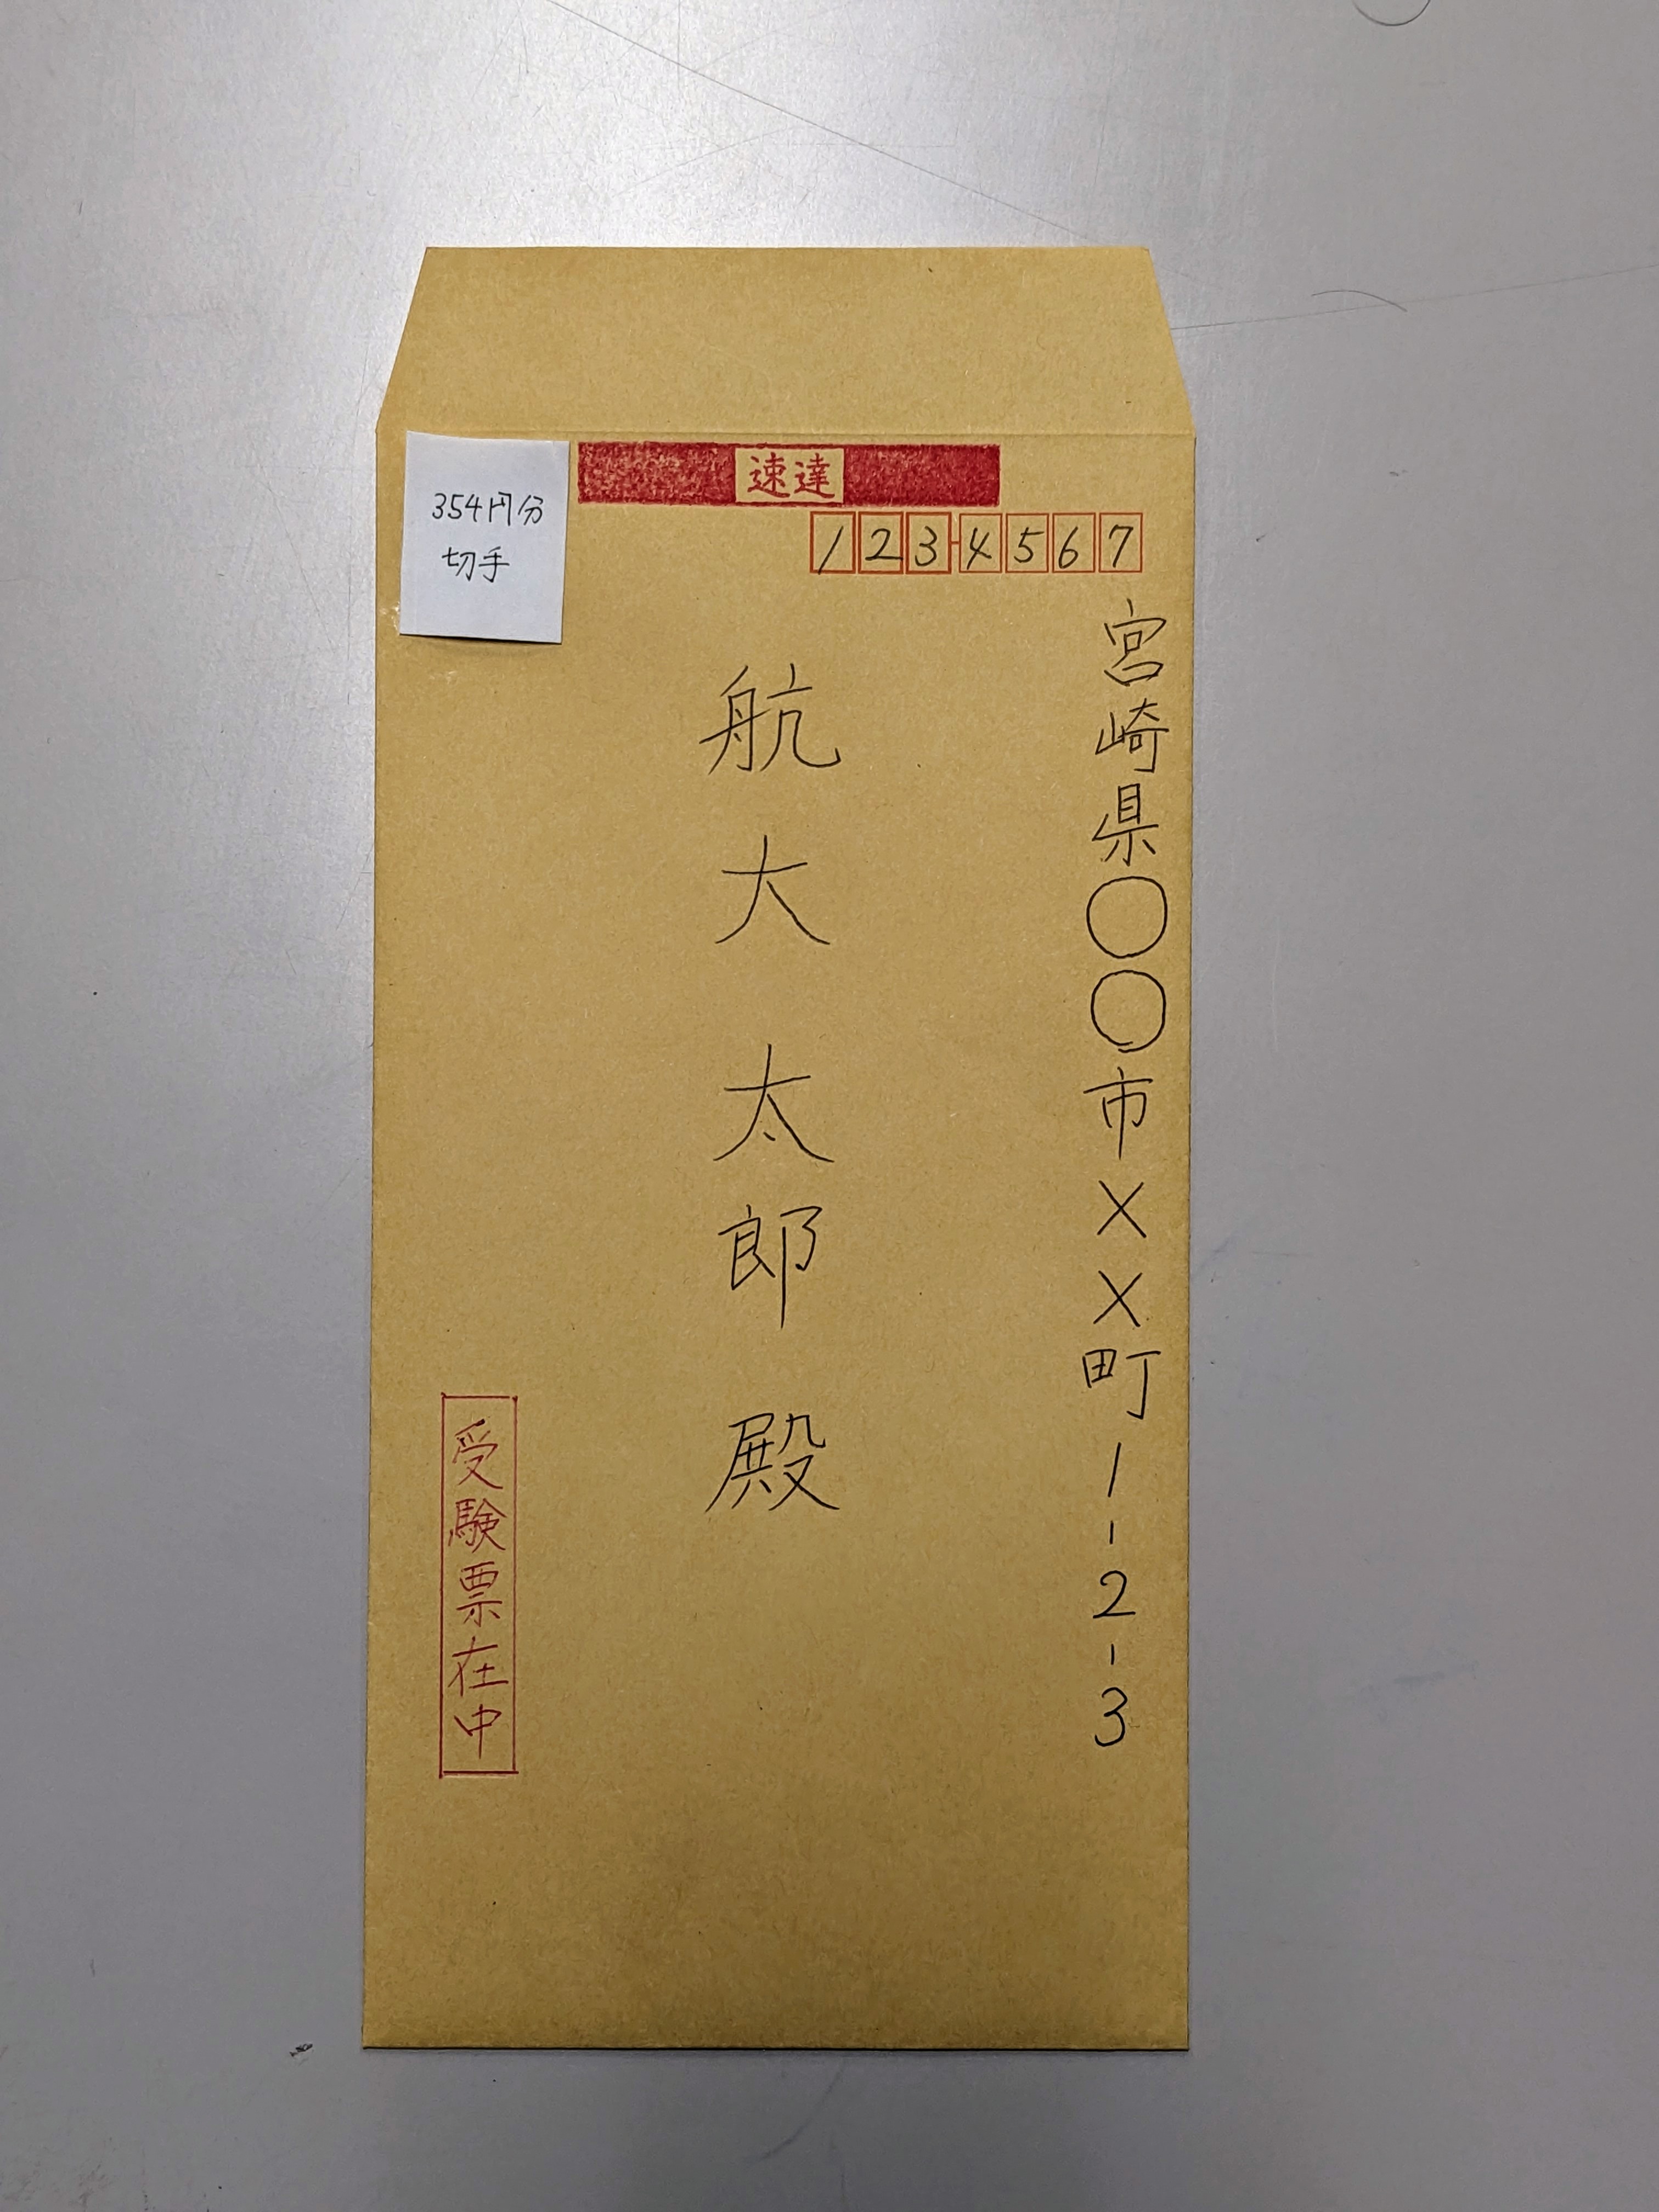 354円分
切手
速達
123-4567
宮崎県〇〇市××町1-2-3
航大 太郎 殿
受験票在中